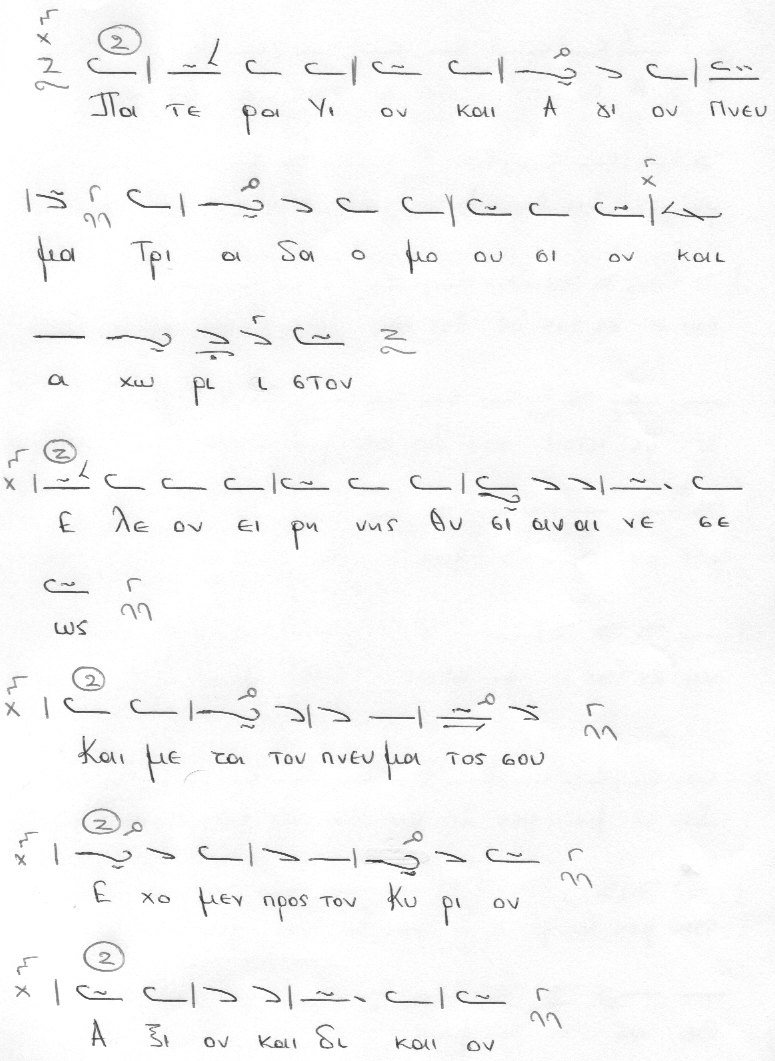 Πα τε ρα Υι ον και Α γι ον Πνευ
μα Τρι α δα ο μο ου σι ον και
α χω ρι ι στον
Ε λε ον ει ρη νης θυ σι αν αι νε σε
ως
Και με τα του πνευ μα τος σου
Ε χο μεν προς τον Κυ ρι ον
Α ξι ον και δι και ον